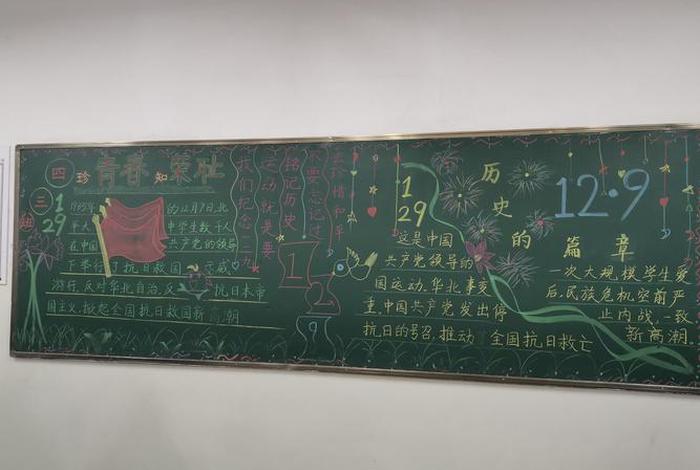 四三班
珍青春知
1
29
1935年 的12月9日,北
平大 中学生数千人
在中国 共产党的领导
下举行了抗日救国示威
游行,反对华北自治,反 抗日本帝
国主义,掀起全国抗日救国新高潮
我们纪念一二九
运动就是要
铭记历史
不要忘记过
去珍惜和平
1
2
9
1
29
历史的篇章
12·9
这是中国
共产党领导的
一次大规模学生爱
国运动,华北事变
后,民族危机空前严
重,中国共产党发出停
止内战,一致
抗日的号召,推动 全国抗日救亡
新高潮